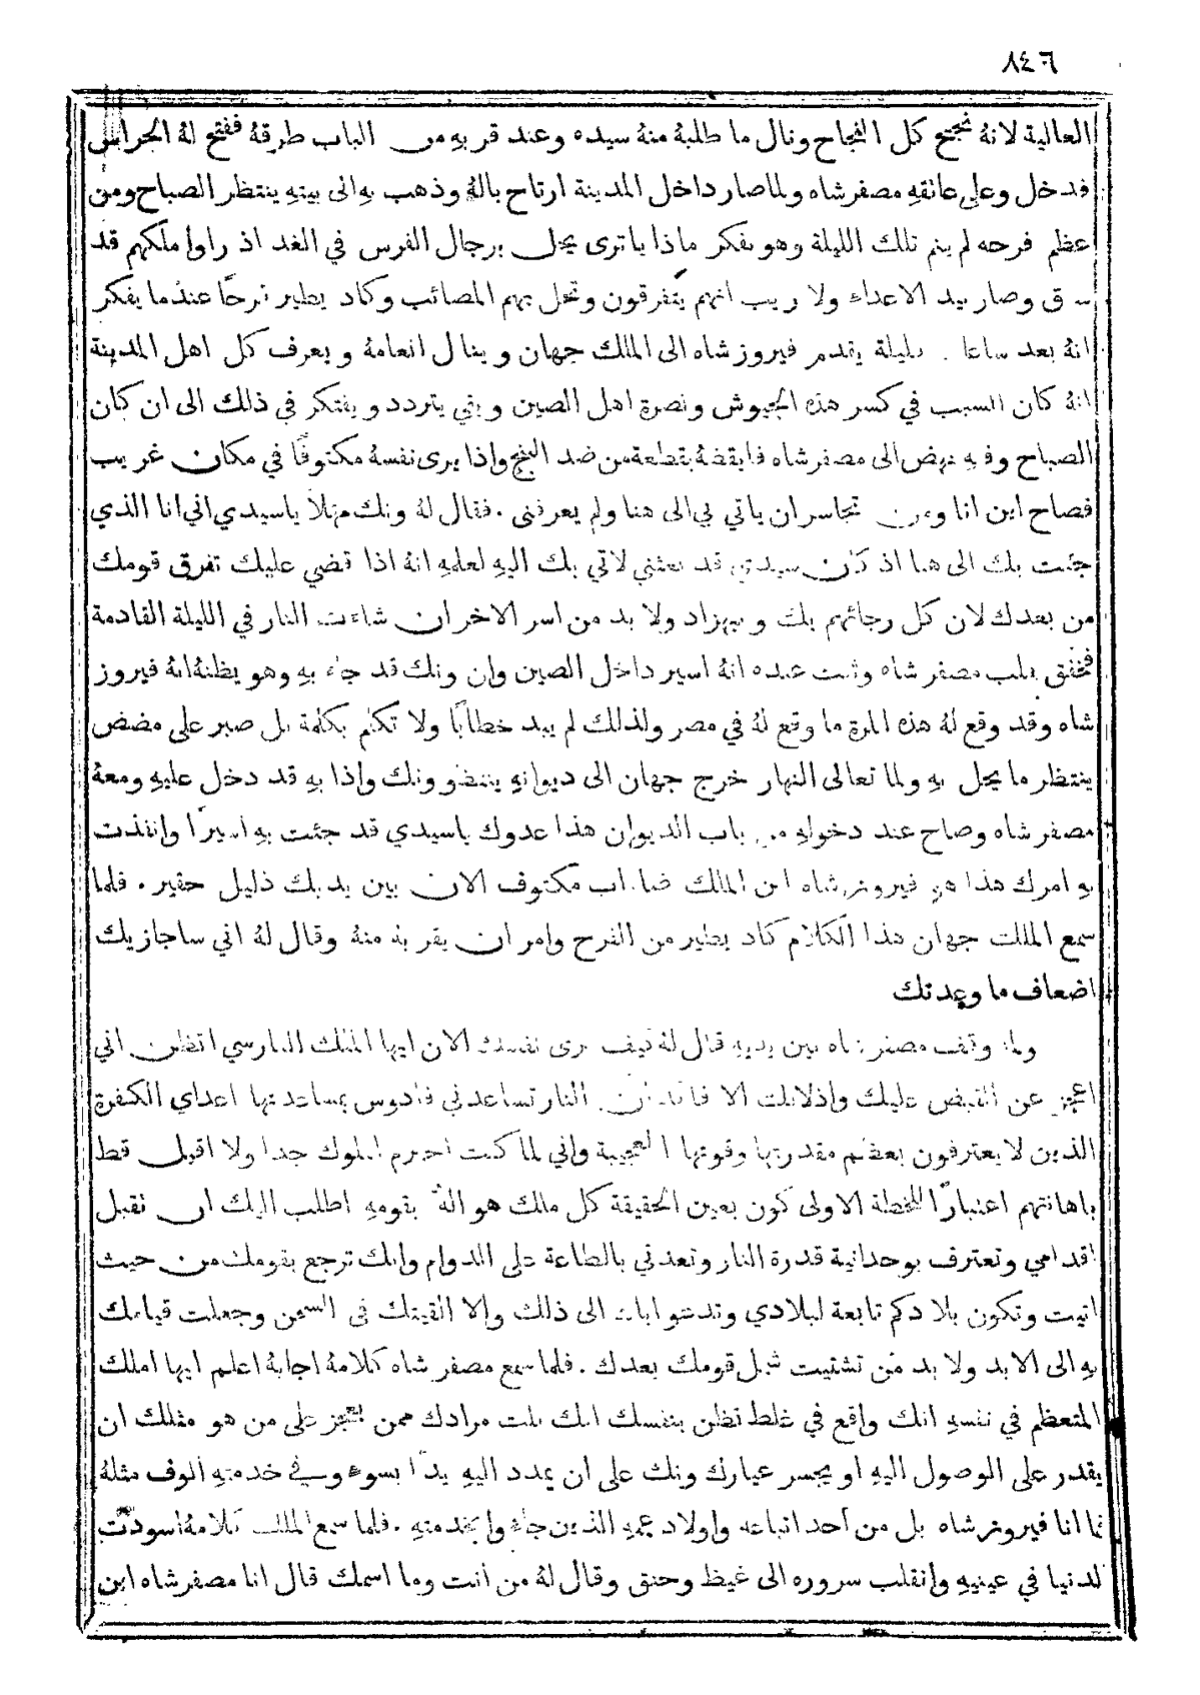 ٨٤٦
العالية لانهُ نجح كل النجاح ونال ما طلبهُ منهُ سيده وعند قربهِ من الباب طرقهُ ففتح لهُ الحراس
فدخل وعلى عاتقهِ مصفرشاه ولما صار داخل المدينة ارتاح بالهُ وذهب بهِ الى بيتهِ ينتظر الصباح ومن
عظم فرحه لم ينم تلك الليلة وهو يفكر ماذا يا ترى يحل برجال الفرس في الغد اذ راوا ملكهم قد
وصار بيد الاعداء ولا ريب انهم يتفرقون وتحل بهم المصائب وكاد يطير فرحًا عندما يفكر
انهُ بعد قليلة يقدم فيروزشاه الى الملك جهان وينال انعامهُ ويعرف كل اهل المدينة
انهُ كان السبب في كسر هذه الجيوش ونصرة اهل الصين وبقي يتردد ويفتكر في ذلك الى ان كان
الصباح وفيهِ نهض الى مصفرشاه فايقضهُ بقطعة من ضد البنج واذا يرى نفسهُ مكتوفًا في مكان غريب
فصاح اين انا ومن تجاسر ان ياتي بي الى هنا ولم يعرفنى . فقال لهُ ونك مهلاً ياسيدي اني انا الذي
جئت بك الى هنا اذ كان سيدي قد بعثني لاتي بك اليهِ لعلمهِ انهُ اذا قضي عليك تفرق قومك
من بعدك لان كل رجائهم بك وببهزاد ولا بد من اسر الاخر ان شاءت النار في الليلة القادمة
فخفق قلب مصفر شاه وثبت عنده انهُ اسير داخل الصين وان ونك قد جاء بهِ وهو يظنهُ انهُ فيروز
شاه وقد وقع لهُ هذه المرة ما وقع لهُ في مصر ولذلك لم يبد خطابًا ولا تكلم بكلمة بل صبر على مضض
ينتظر ما يحل بهِ ولما تعالى النهار خرج جهان الى ديوانهِ ينتظر ونك واذا به قد دخل عليهِ ومعهُ
مصفر شاه وصاح عند دخولهِ من باب الديوان هذا عدوك ياسيدي قد جئت بهِ اسيرًا وانفذت
بهِ امرك هذا هو فيروزشاه ابن الملك ضاراب مكتوف الان بين يديك ذليل حقير . فلما
سمع الملك جهان هذا الكلام كاد يطير من الفرح وامر ان يقربهُ منهُ وقال لهُ اني ساجازيك
اضعاف ما وعدتك
ولما وقف مصفرشاه بين يديهِ قال لهُ كيف ترى نفسك الان ايها الملك الفارسي اتظن اني
اعجز عن القبض عليك واذلالك الا النار تساعدني فادوس بمساعدتها اعداي الكفرة
الذين لا يعترفون بعظم مقدرتها وقوتها العجيبة واني لما كنت احترم الملوك جدا ولا اقول قط
باهانتهم اعتبارًا للخطة الاولى كون بعين الحقيقة كل ملك هو الهُ بقومهِ اطلب اليك ان تقبل
اقدامي وتعترف بوحدانية قدرة النار وتعدني بالطاعة على الدوام وانك ترجع بقومك من حيث
اتيت وتكون بلادكم تابعة لبلادي وتدعو اباك الى ذلك والا القيتك في السجن وجعلت قيامك
بهِ الى الابد ولا بد من تشتيت شمل قومك بعدك . فلما سمع مصفر شاه كلامهُ اجابهُ اعلم ايها الملك
المتعظم في نفسهِ انك واقع في غلط تظن بنفسك انك نلت مرادك ممن يعجز على من هو مثلك ان
يقدر على الوصول اليهِ او يجسر عيارك ونك على ان يمدد اليهِ يدًا بسوء وفي خدمتهِ الوف مثلهُ
فما انا فيروزشاه بل من احد اتباعه واولاد عمهِ الذين جاءوا بخدمتهِ . فلما سمع الملك كلامهُ اسودت
الدنيا في عينيهِ وانقلب سروره الى غيظ وحنق وقال لهُ من أنت وما اسمك قال انا مصفرشاه ابن